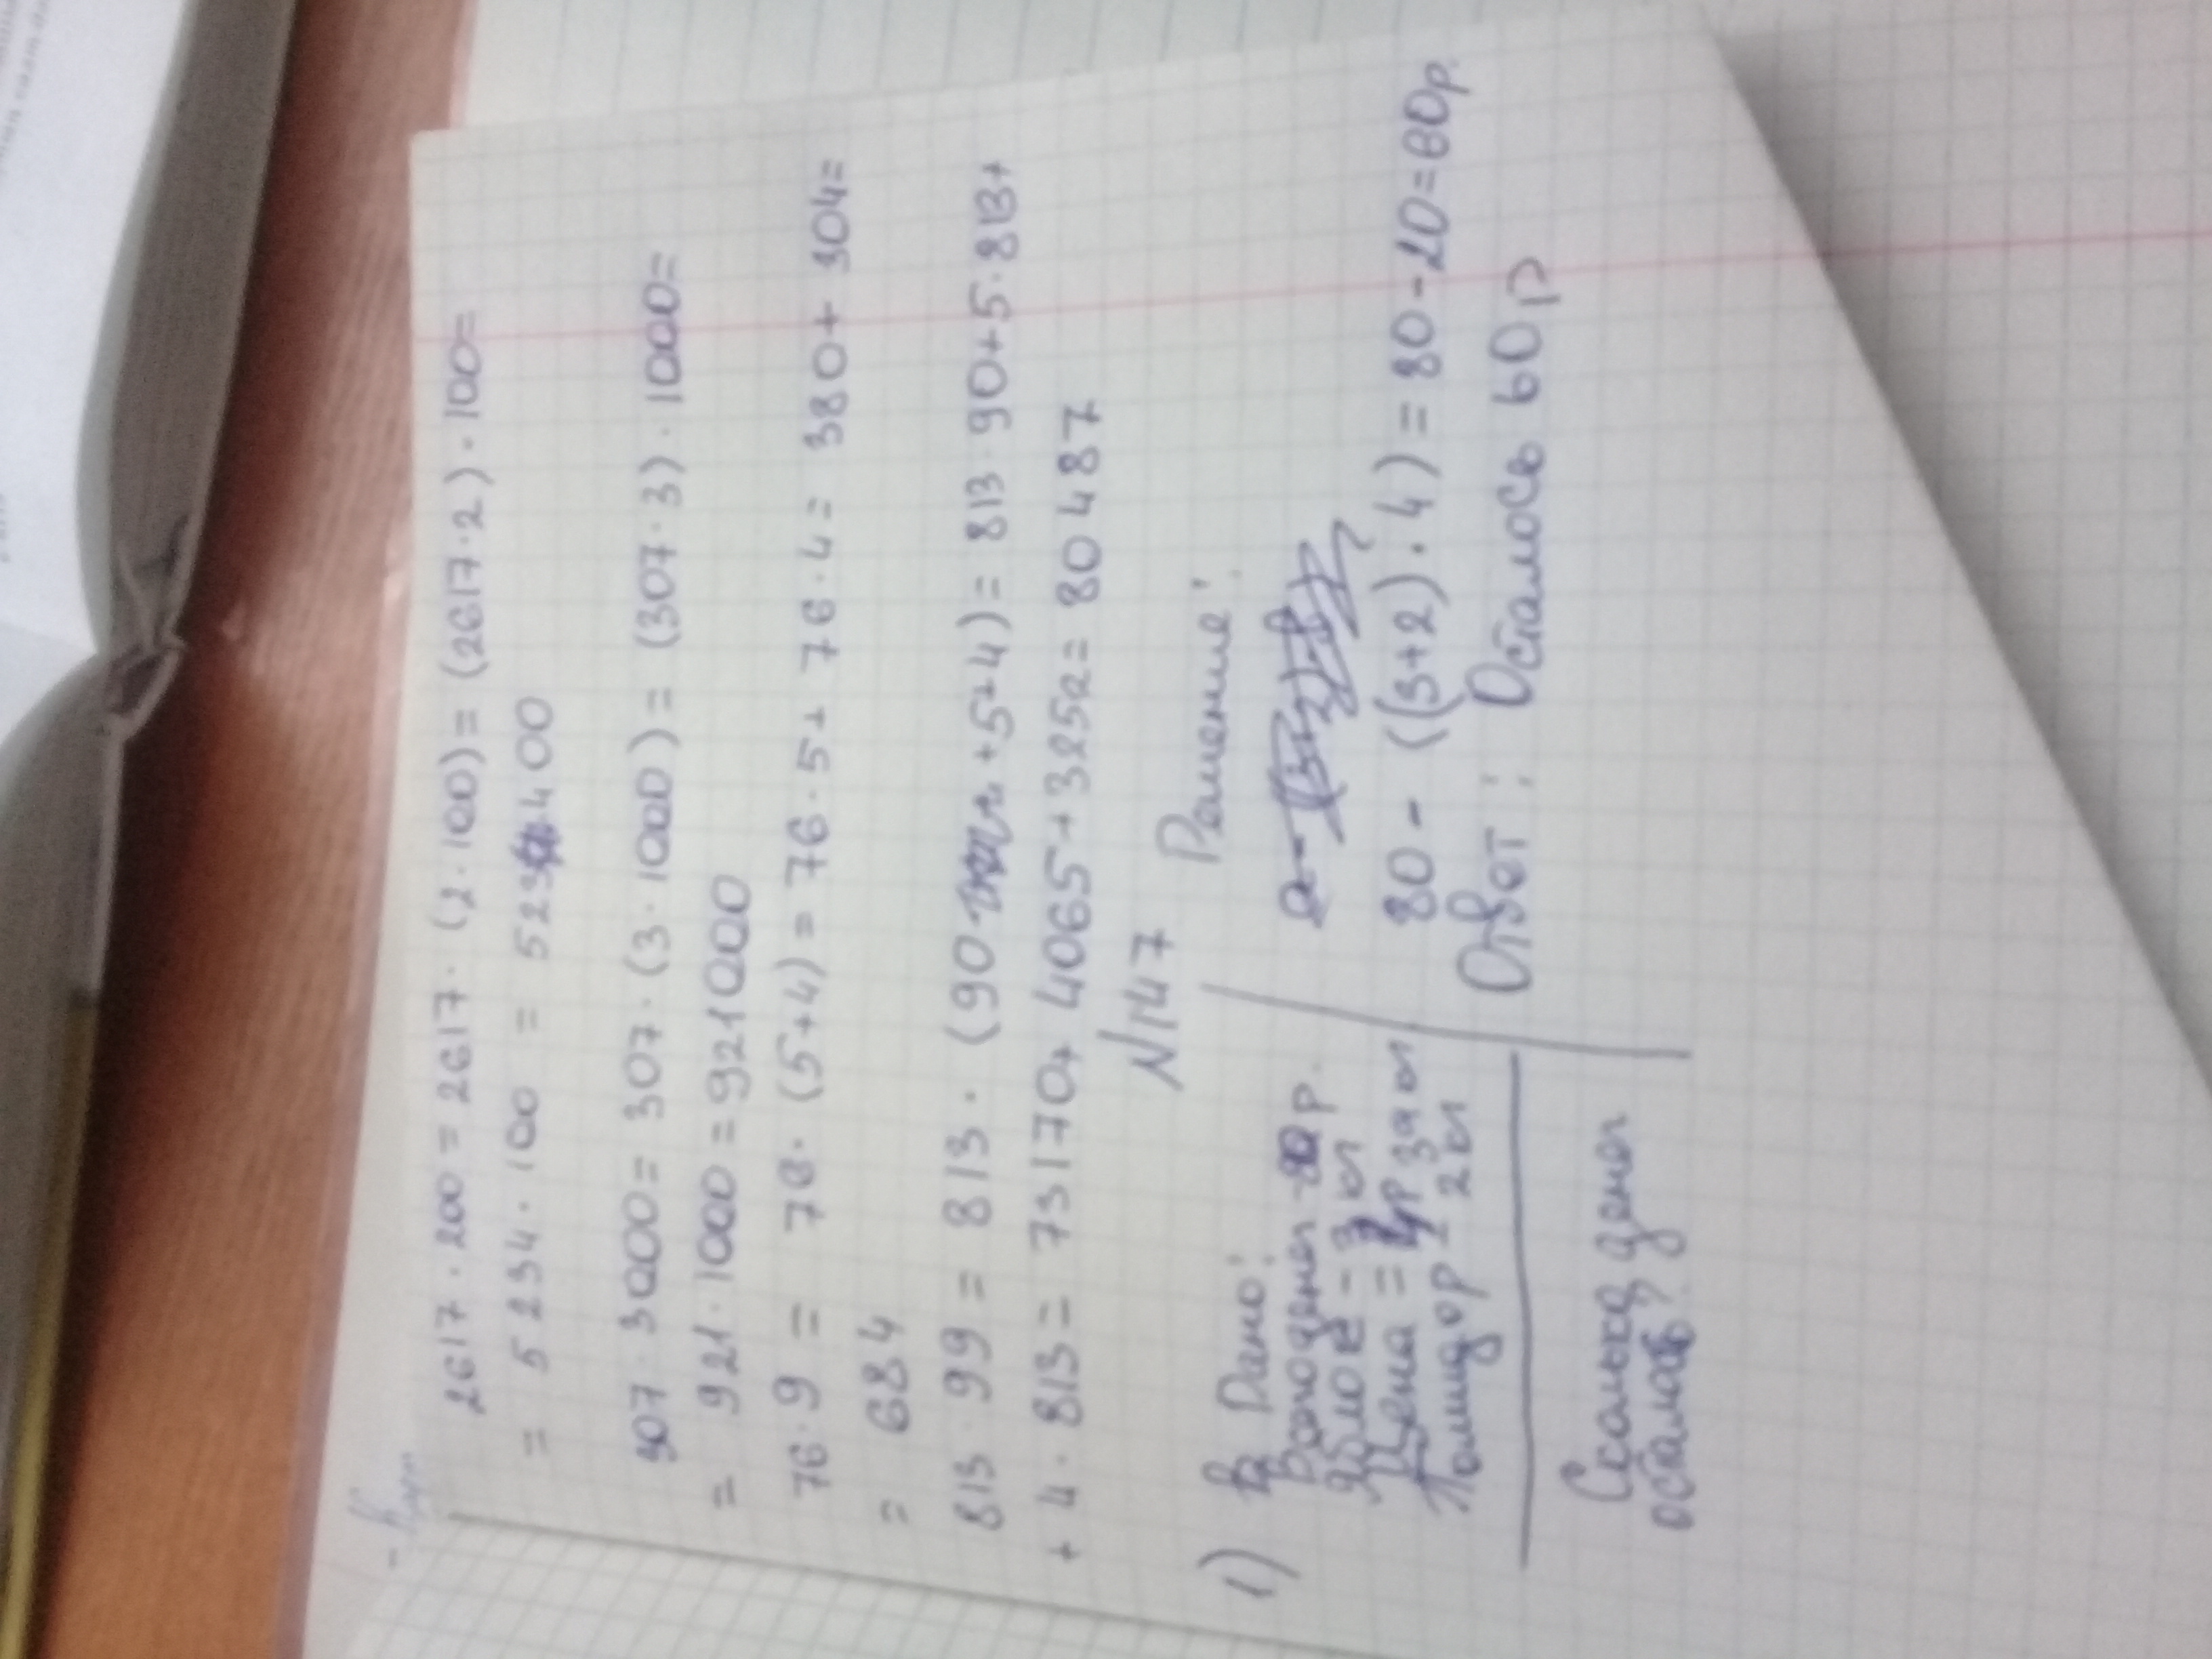 2617 · 200 = 2617 · (2 · 100) = (2617 · 2) · 100 =
= 5234 · 100 = 523400
307 · 3000 = 307 · (3 · 1000) = (307 · 3) · 1000 =
= 921 · 1000 = 921000
76 · 9 = 76 · (5+4) = 76 · 5 + 76 · 4 = 380 + 304 =
= 684
813 · 99 = 813 · (90 +5+4) = 813 · 90 + 5 · 813 +
+ 4 · 813 = 73170 + 4065 + 3252 = 80487
N147
1) Дано:
Всего денег 80 р.
Яблое - 3 кг
Цена = 4р за кг
Помидор 2 кг
Сколько денег
осталось?
Решение:
80 - ((3+2) · 4) = 80 - 20 = 60р.
Ответ: Осталось 60 р